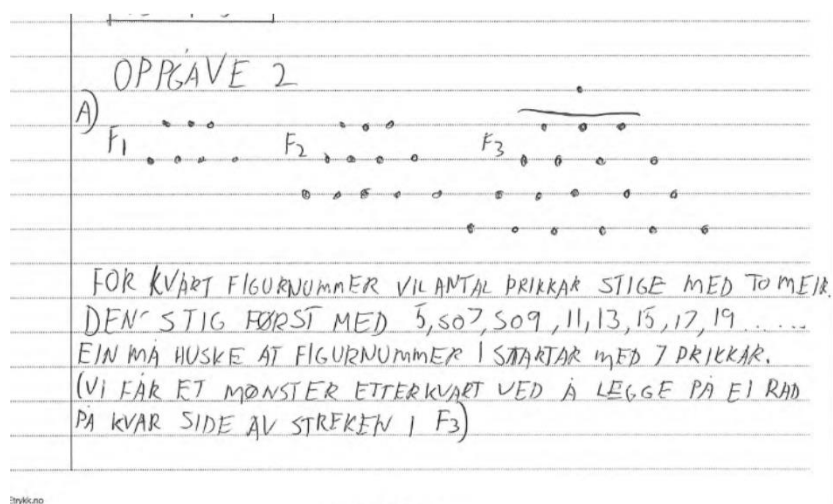 OPPGAVE 2
A)
F1 F2 F3
FOR KVART FIGURNUMMER VIL ANTAL PRIKKAR STIGE MED TO MEIR.
DEN STIG FØRST MED 5, SO 7, SO 9, 11, 13, 15, 17, 19......
EIN MÅ HUSKE AT FIGURNUMMER 1 STARTAR MED 7 PRIKKAR.
(VI FÅR ET MØNSTER ETTERKVART VED Å LEGGE PÅ EI RAD
PÅ KVAR SIDE AV STREKEN I F3)
Etrykk.no